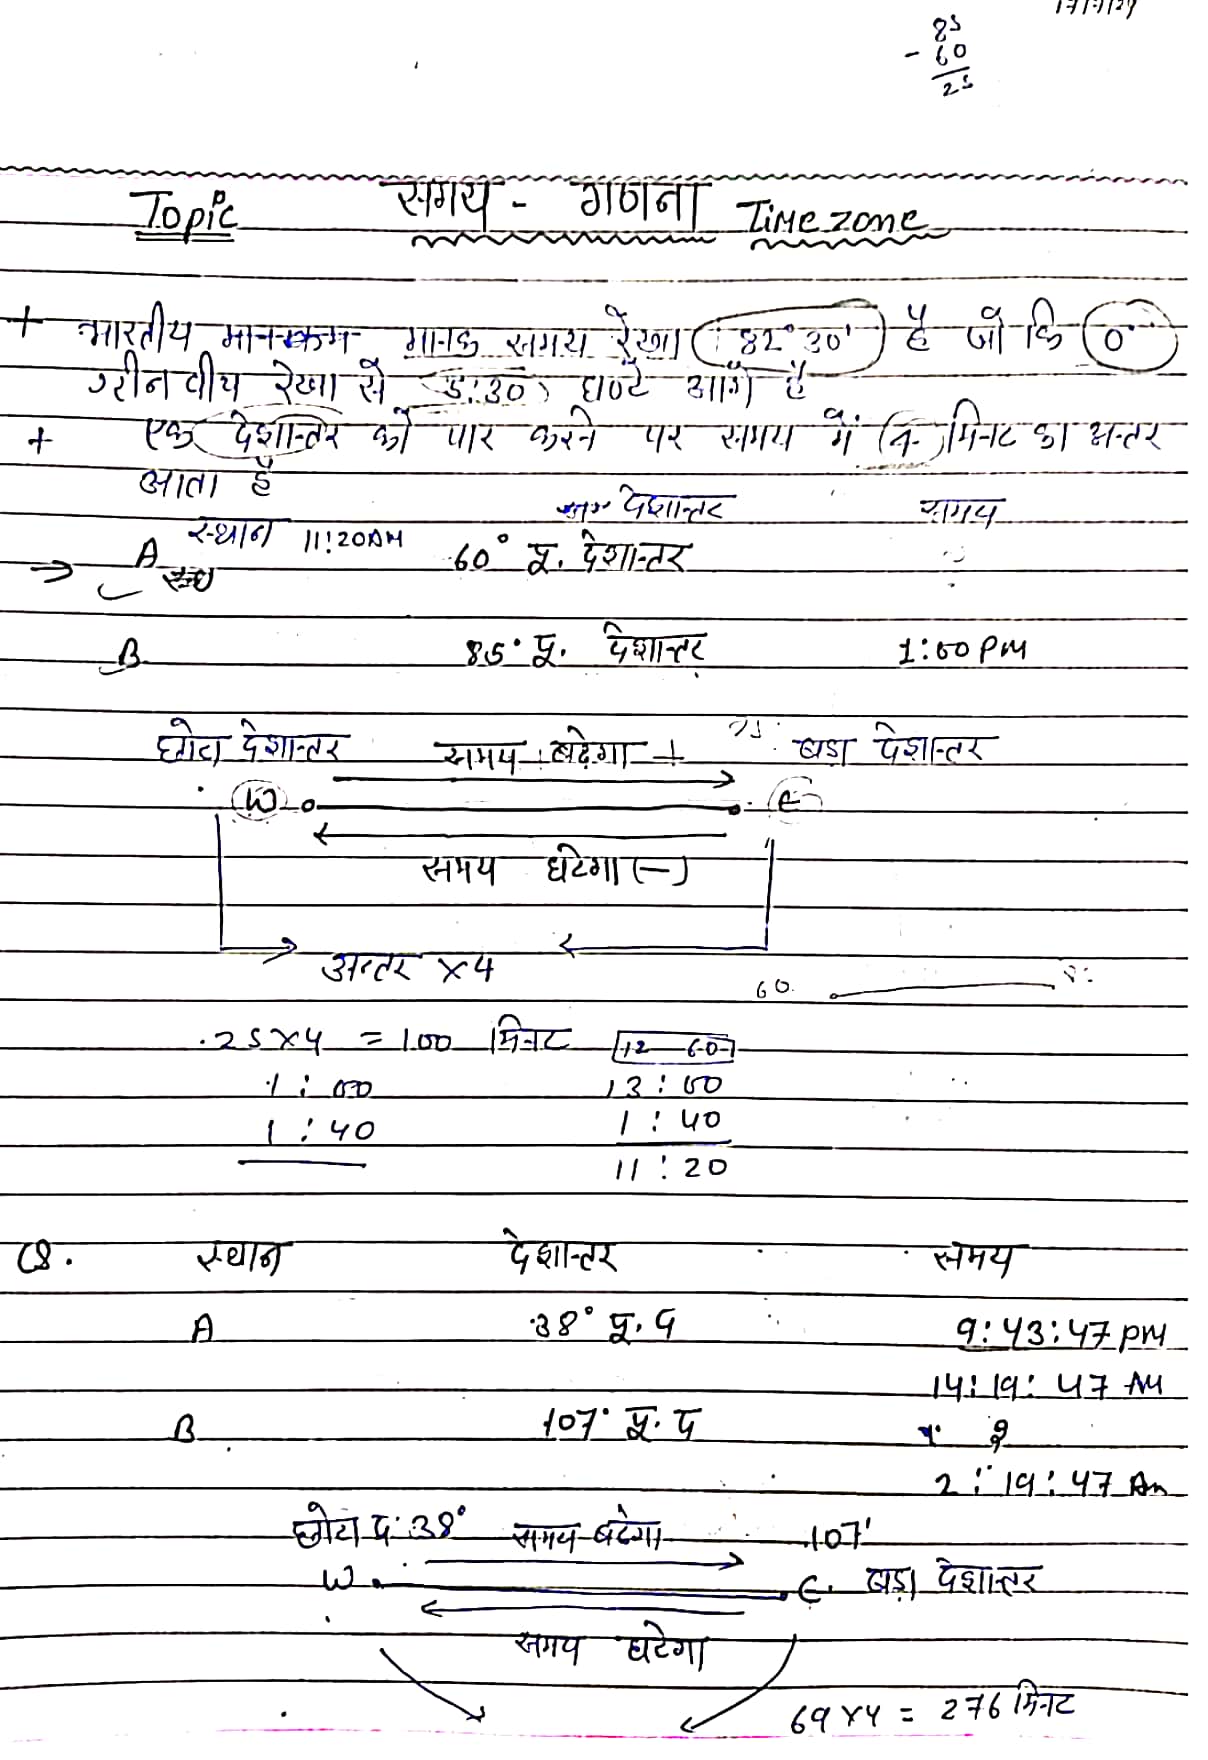 85
- 60
25
Topic समय - गणना Time zone
+ भारतीय मानक समय रेखा 82°30' है जो कि 0°
ग्रीनवीय रेखा से 5:30 घण्टे आगे है
+ एक देशान्तर को पार करने पर समय में 4 मिनट का अन्तर
आता है
स्थान देशान्तर समय
A 11:20AM 60° पू. देशान्तर
B 85° पू. देशान्तर 1:00 PM
छोटा देशान्तर समय बढ़ेगा + बड़ा देशान्तर
W E
समय घटेगा (-)
अन्तर x4
60.
25x4 = 100 मिनट 12 60
1:00 13:00
1:40 1:40
11:20
Q. स्थान देशान्तर समय
A 38° पू. द 9:43:47 PM
14:19:47 AM
B 107° पू. द ?
2:19:47 Am
छोटा द. 38° समय बढेगा 107°
W E बड़ा देशान्तर
समय घटेगा
69x4 = 276 मिनट